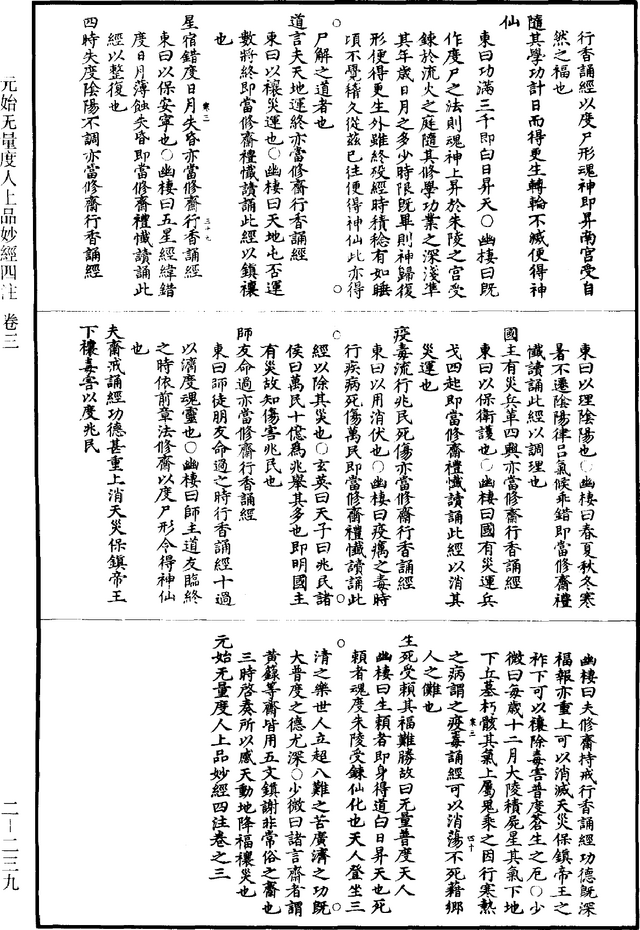 行香誦經以度尸形魂神即昇南宮受自
然之福也
隨其學功計日而得更生轉輪不滅便得神
仙
東曰功滿三千即白日昇天〇幽棲曰既
作度尸之法則魂神上昇於朱陵之宮受
鍊於流火之庭隨其修學功業之深淺準
其年歲日月之多少時限旣畢則神歸復
形便得更生外雖終殁經時積稔有如睡
頃不覺稽久從兹已往便得神仙此亦得
尸解之道者也
道言夫天地運終亦當修齋行香誦經
東曰以禳災運也〇幽棲曰天地屯否運
數將終即當修齋禮懺讀誦此經以鎮禳
也
星宿錯度日月失昏亦當修齋行香誦經
東曰以保安寧也〇幽棲曰五星經緯錯
度日月薄蝕失昏即當修齋禮懺讀誦此
經以整復也
四時失度陰陽不調亦當修齋行香誦經
東曰以理陰陽也〇幽棲曰春夏秋冬寒
暑不遷陰陽律呂氣候乖錯即當修齋禮
懺讀誦此經以調理也
國主有災兵革四興亦當修齋行香誦經
東曰以保衛護也〇幽棲曰國有災運兵
戈四起即當修齋禮懺讀誦此經以消其
災運也
疫毒流行兆民死傷亦當修齋行香誦經
東曰以用消伏也〇幽棲曰疫癘之毒時
行疾病死傷萬民即當修齋禮懺讀誦此
經以除其災也〇玄英曰天子曰兆民諸
侯曰萬民十億爲兆舉其多也即明國主
有災故知傷害兆民也
師友命過亦當修齋行香誦經
東曰師徒朋友命過之時行香誦經十過
以濟度魂靈也〇幽棲曰師主道友臨終
之時依前章法修齋以度尸形令得神仙
也
夫齋戒誦經功德甚重上消天災保鎮帝王
下禳毒害以度兆民
幽棲曰夫修齋持戒行香誦經功德旣深
福報亦重上可以消滅天災保鎮帝王之
祚下可以禳除毒害普度蒼生之厄〇少
微曰每歲十二月大陵積屍星其氣下地
下丘墓朽骸其氣上屬鬼乘之因行寒熱
之病謂之疫毒誦經可以消蕩不死藉鄉
人之儺也
生死受賴其福難勝故曰无量普度天人
幽棲曰生賴者即身得道白日昇天也死
賴者魂度朱陵受鍊仙化也天人登坐三
清之樂世人立超八難之苦廣濟之功旣
大普度之德尤深〇少微曰諸言齋者謂
黃籙等齋皆用五文鎮謝非常俗之齋也
三時啓奏所以感天動地降福禳災也
元始无量度人上品妙經四注卷之三
元始无量度人上品妙經四注 卷三
二—二三九
寒三
三十九
寒三
四十